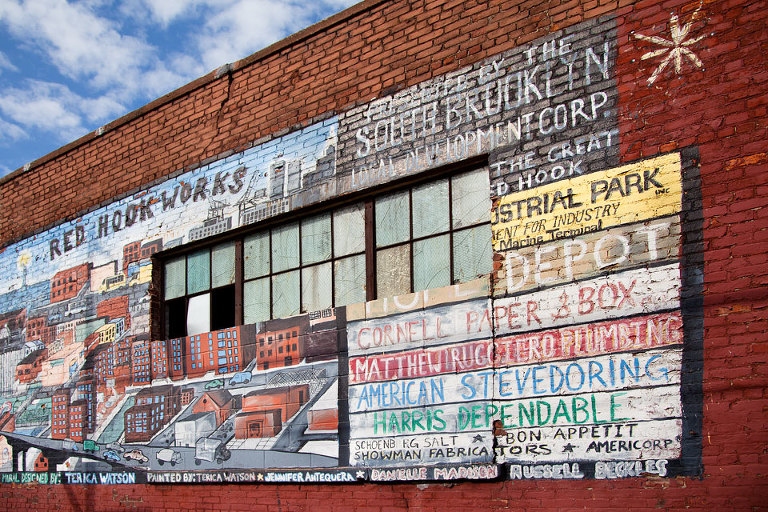 RED HOOK WORKS
BY THE
SOUTH BROOKLYN
LOCAL DEVELOPMENT CORP.
THE GREAT
D HOOK
STRIAL PARK INC
ENT FOR INDUSTRY
Marine Terminal
DEPOT
CORNELL PAPER & BOX
MATTHEW RUGGIERO PLUMBING
AMERICAN STEVEDORING
HARRIS DEPENDABLE
SCHOENBERG SALT ★ BON APPETIT
SHOWMAN FABRICATORS ★ AMERICORP
MURAL DESIGNED BY: TERICA WATSON PAINTED BY: TERICA WATSON ★ JENNIFER ANTEQUERA ★ DANIELLE MADISON RUSSELL BECKLES